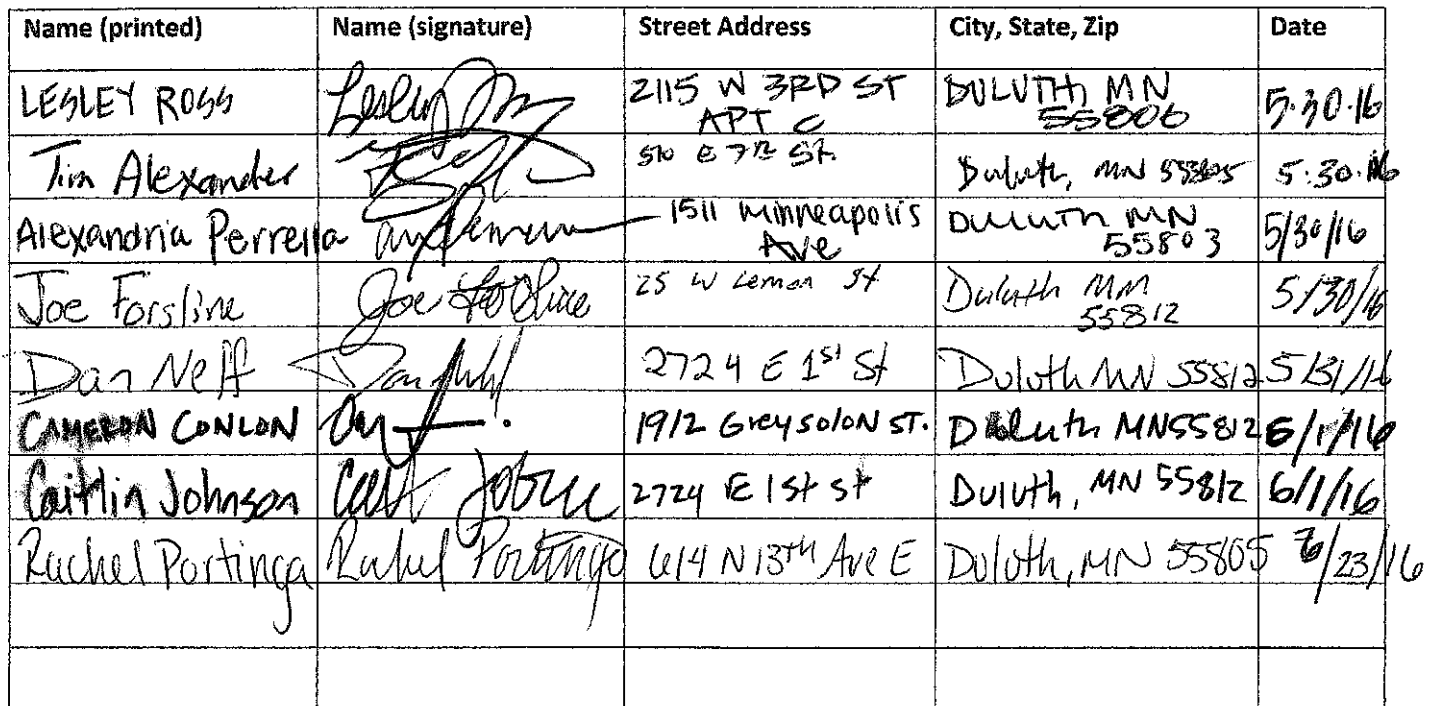 Name (printed) Name (signature) Street Address City, State, Zip Date
LESLEY ROSS Lesley 2115 W 3RD ST DULUTH, MN 5.30.16
APT C 55806
Tim Alexander 510 E 7th St. Duluth, MN 55805 5.30.16
Alexandria Perrella 1511 Minneapolis DULUTH MN 5/30/16
Ave 55803
Joe Forsline Joe Forsline 25 W Lemon St Duluth MN 5/30/16
55812
Dan Neff Dan Neff 2724 E 1st St Duluth MN 55812 5/31/16
CAMERON CONLON 1912 Greysolon ST. Duluth MN 55812 6/1/16
Caitlin Johnson 2724 E 1st st Duluth, MN 55812 6/1/16
Rachel Portinga Rachel Portinga 614 N 13th Ave E Duluth, MN 55805 6/23/16